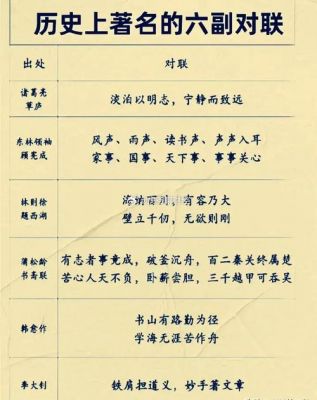 历史上著名的六副对联
出处
对联
诸葛亮
草庐
淡泊以明志，宁静而致远
东林领袖
顾宪成
风声、雨声、读书声、声声入耳
家事、国事、天下事、事事关心
林则徐
题西湖
海纳百川，有容乃大
壁立千仞，无欲则刚
蒲松龄
书斋联
有志者事竟成，破釜沉舟，百二秦关终属楚
苦心人天不负，卧薪尝胆，三千越甲可吞吴
韩愈作
书山有路勤为径
学海无涯苦作舟
李大钊
铁肩担道义，妙手著文章